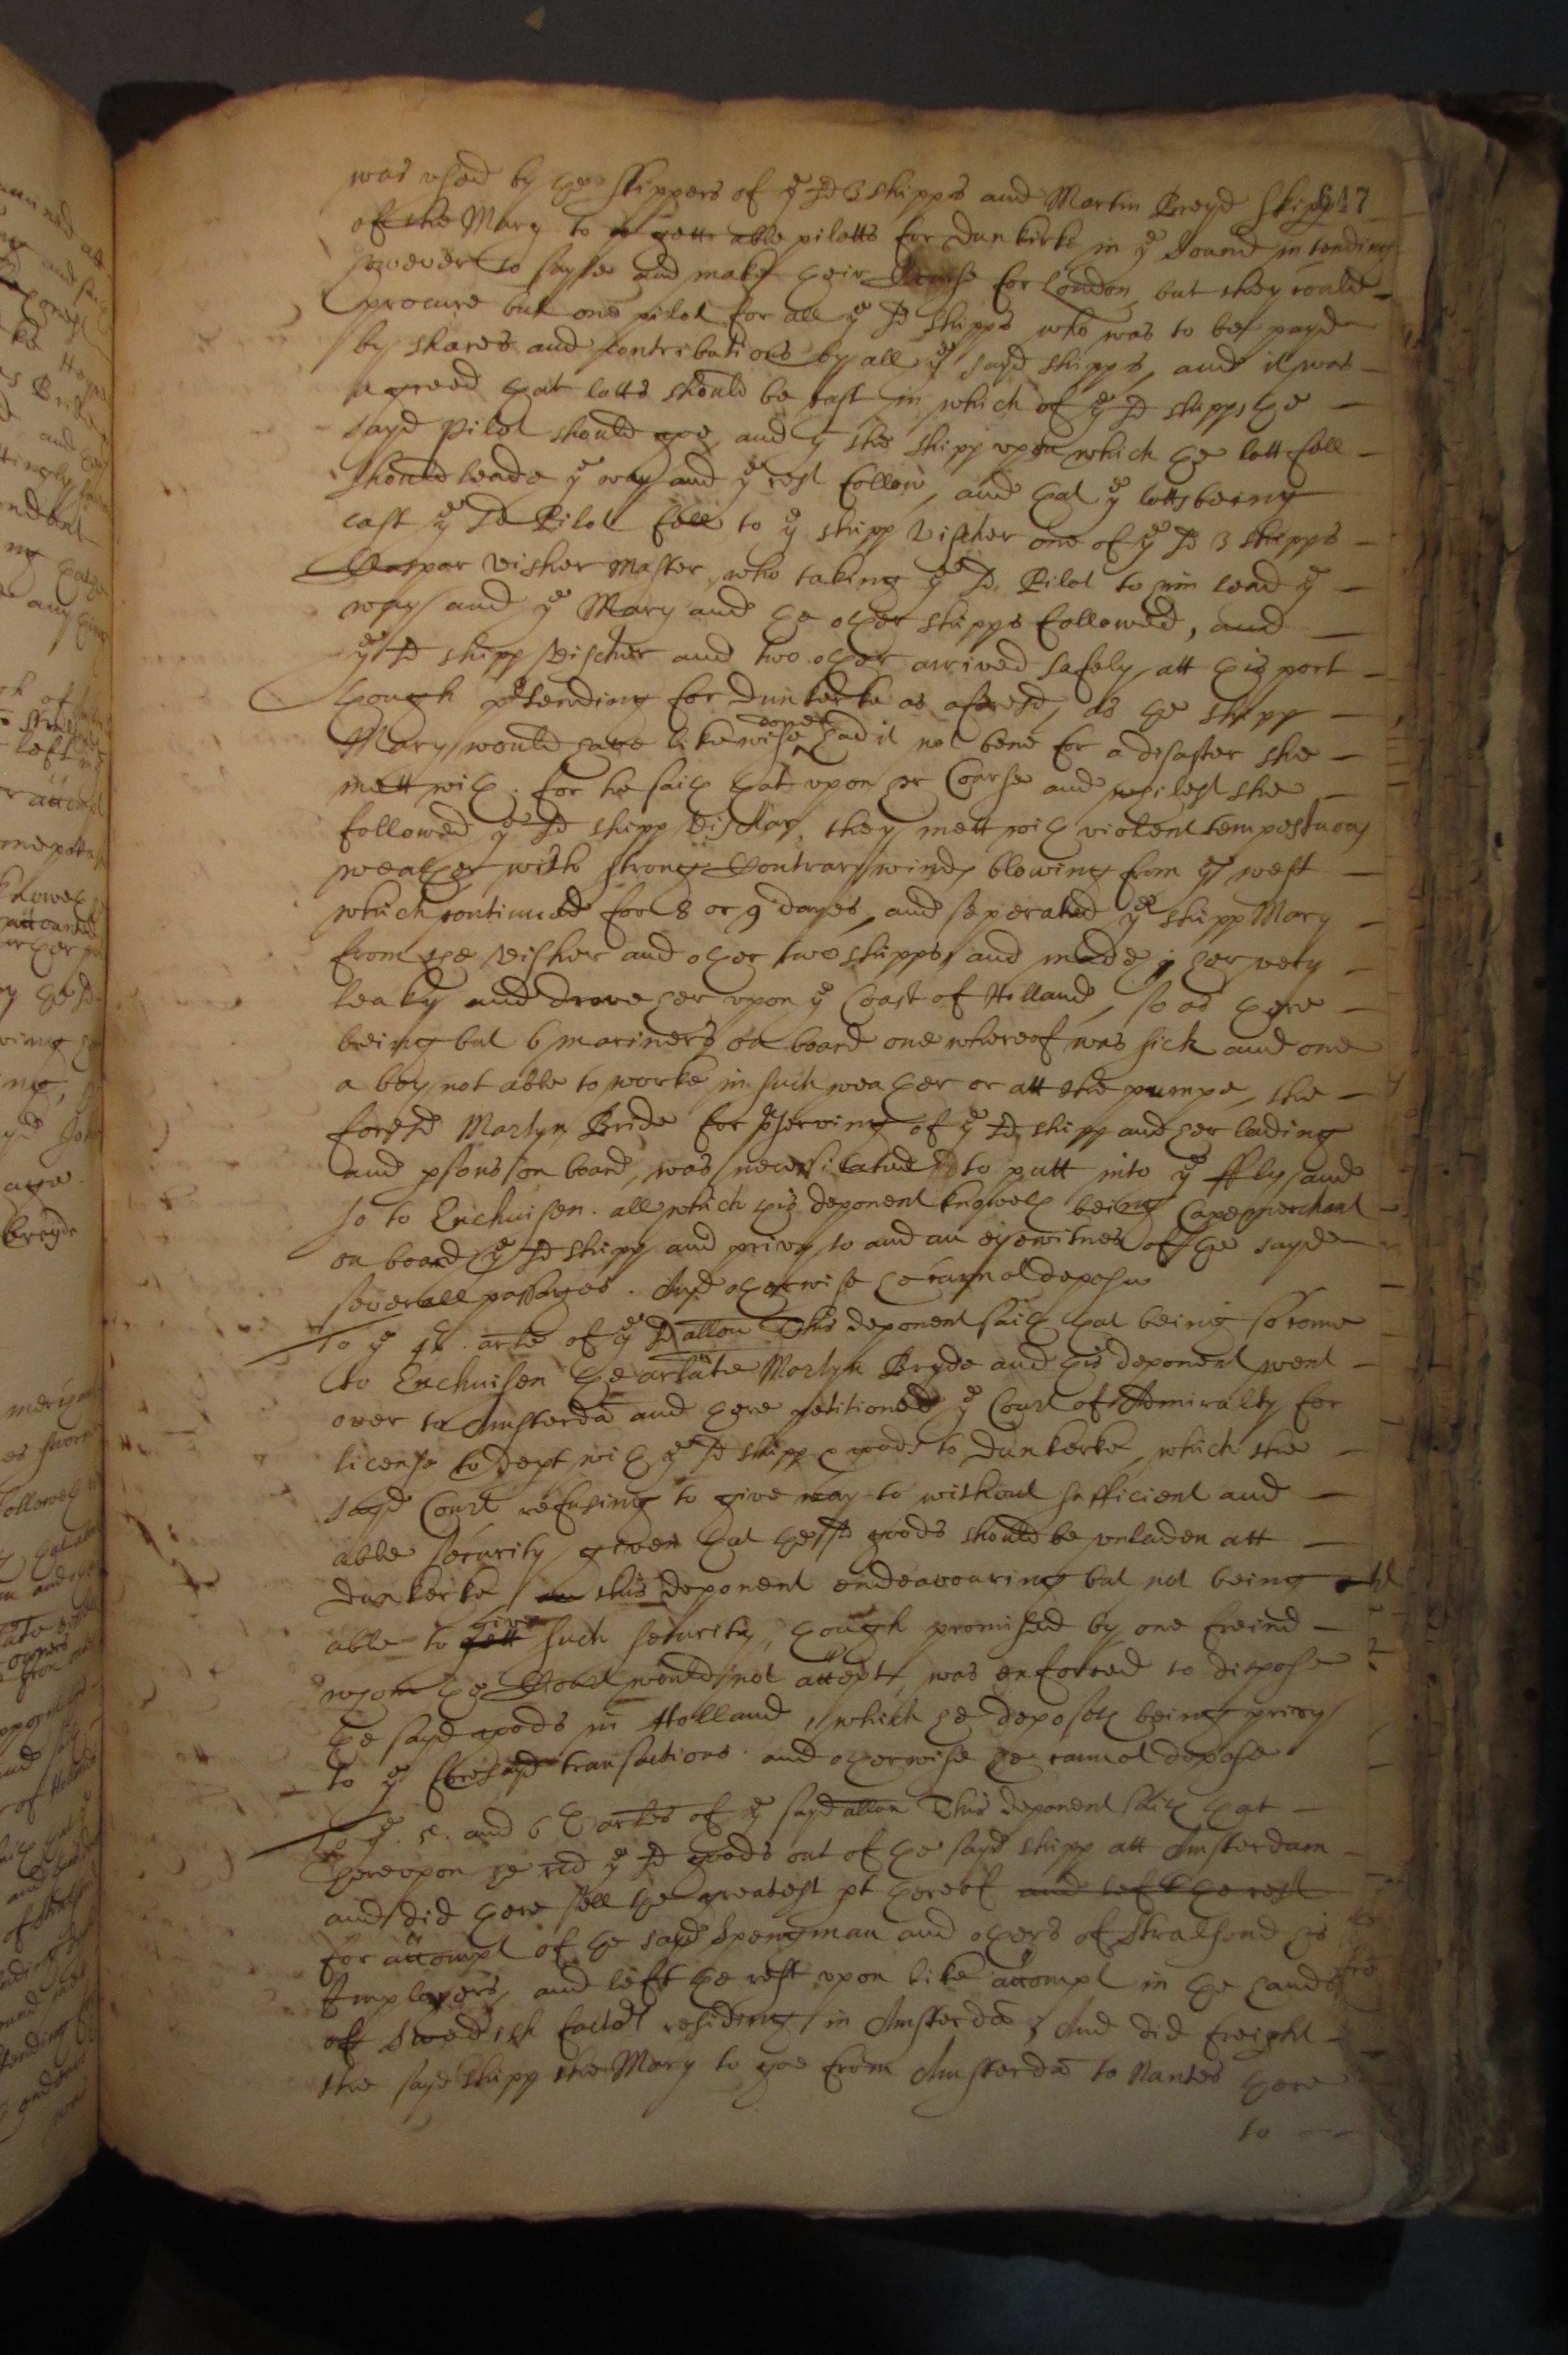 was used by the skippers of ye sd 3 shipps and Martin Breyd skipp 517
of the Mary to gett able pilotts for Dunkirke in ye Sound intending
however to sayle and make their Course for London, but they could
procure but one pilot for all ye sd shipps who was to be payd
by shares and contributions by all ye sayd shipps, and it was
agreed that lotts should be cast in which of ye sd shipps the
sayd Pilot should goe, and the shipp upon which the lott fell
should leade ye way and ye rest follow, and that ye lotts being
cast ye sd Pilot fell to ye shipp Vischer one of ye sd 3 shipps
Caspar Visher master, who taking ye sd Pilot to him lead ye
way and ye Mary and the other shipps followed, and
ye sd shipp Vischer and two other arrived safely att this port
though p'tending for Dunkerke as aforesd, as the shipp
Mary would have likewise done had it not bene for a disaster she
mett with. for he saith that upon her Course and whilest she
followed ye sd shipp Vischar, they mett with violent tempestuous
weather with strong Contrary winds blowing from ye west
which continued for 8 or 9 dayes, and seperated ye shipp Mary
from the Visher and other two shipps, and made her very
leaky and drove her upon ye Coast of Holland, so as there
being but 6 mariners on board one whereof was sick and one
a boy not able to worke in such weather or att the pumpe, the
foresd Martyn Bride for p'serving of ye sd shipp and her lading
and psons on board, was necessitated to putt into ye ffly and
so to Enchuisen. all which this deponent knoweth being Cape merchant
on board ye sd shipp and privy to and an eyewitnes of the sayd
severall passages. And otherwise he cannot depose
To ye 4th. arle of ye sd allon This deponent saith that being so come
to Enchuisen the arlate Martyn Bryde and this deponent went
over to Amsterda and there petitioned ye Court of Admiralty for
license to dept with ye sd shipp & goods to Dunkerke, which the
sayd Court refusing to give way to without sufficient and
able security given that the sd goods should be unladen att
Dunkerke this deponent endeavouring but not being
able to gett give such security, though promised by one freind
whom the Court would not accept, was enforced to dispose
the sayd goods in Holland, which he deposeth being privy
to ye foresayd transactions. and otherwise he cannot depose
To ye. 5. and 6th arles of ye sayd allon This deponent saith that
thereupon he ye sd goods out of the sayd shipp att Amsterdam
and did there sell the greatest pt thereof and left the rest
for accompt of the sayd Spengman and others of Stralsond his
Imployers, and left the rest upon like accompt in the hands
of Swedish factor residing in Amsterda, And did freight
the sayd shipp the Mary to goe from Amsterda to Nantes there
to